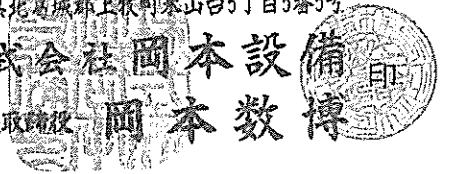 北葛城郡上牧町米山台5丁目3番5号
式会社岡本設備
取締役 岡本数博
印